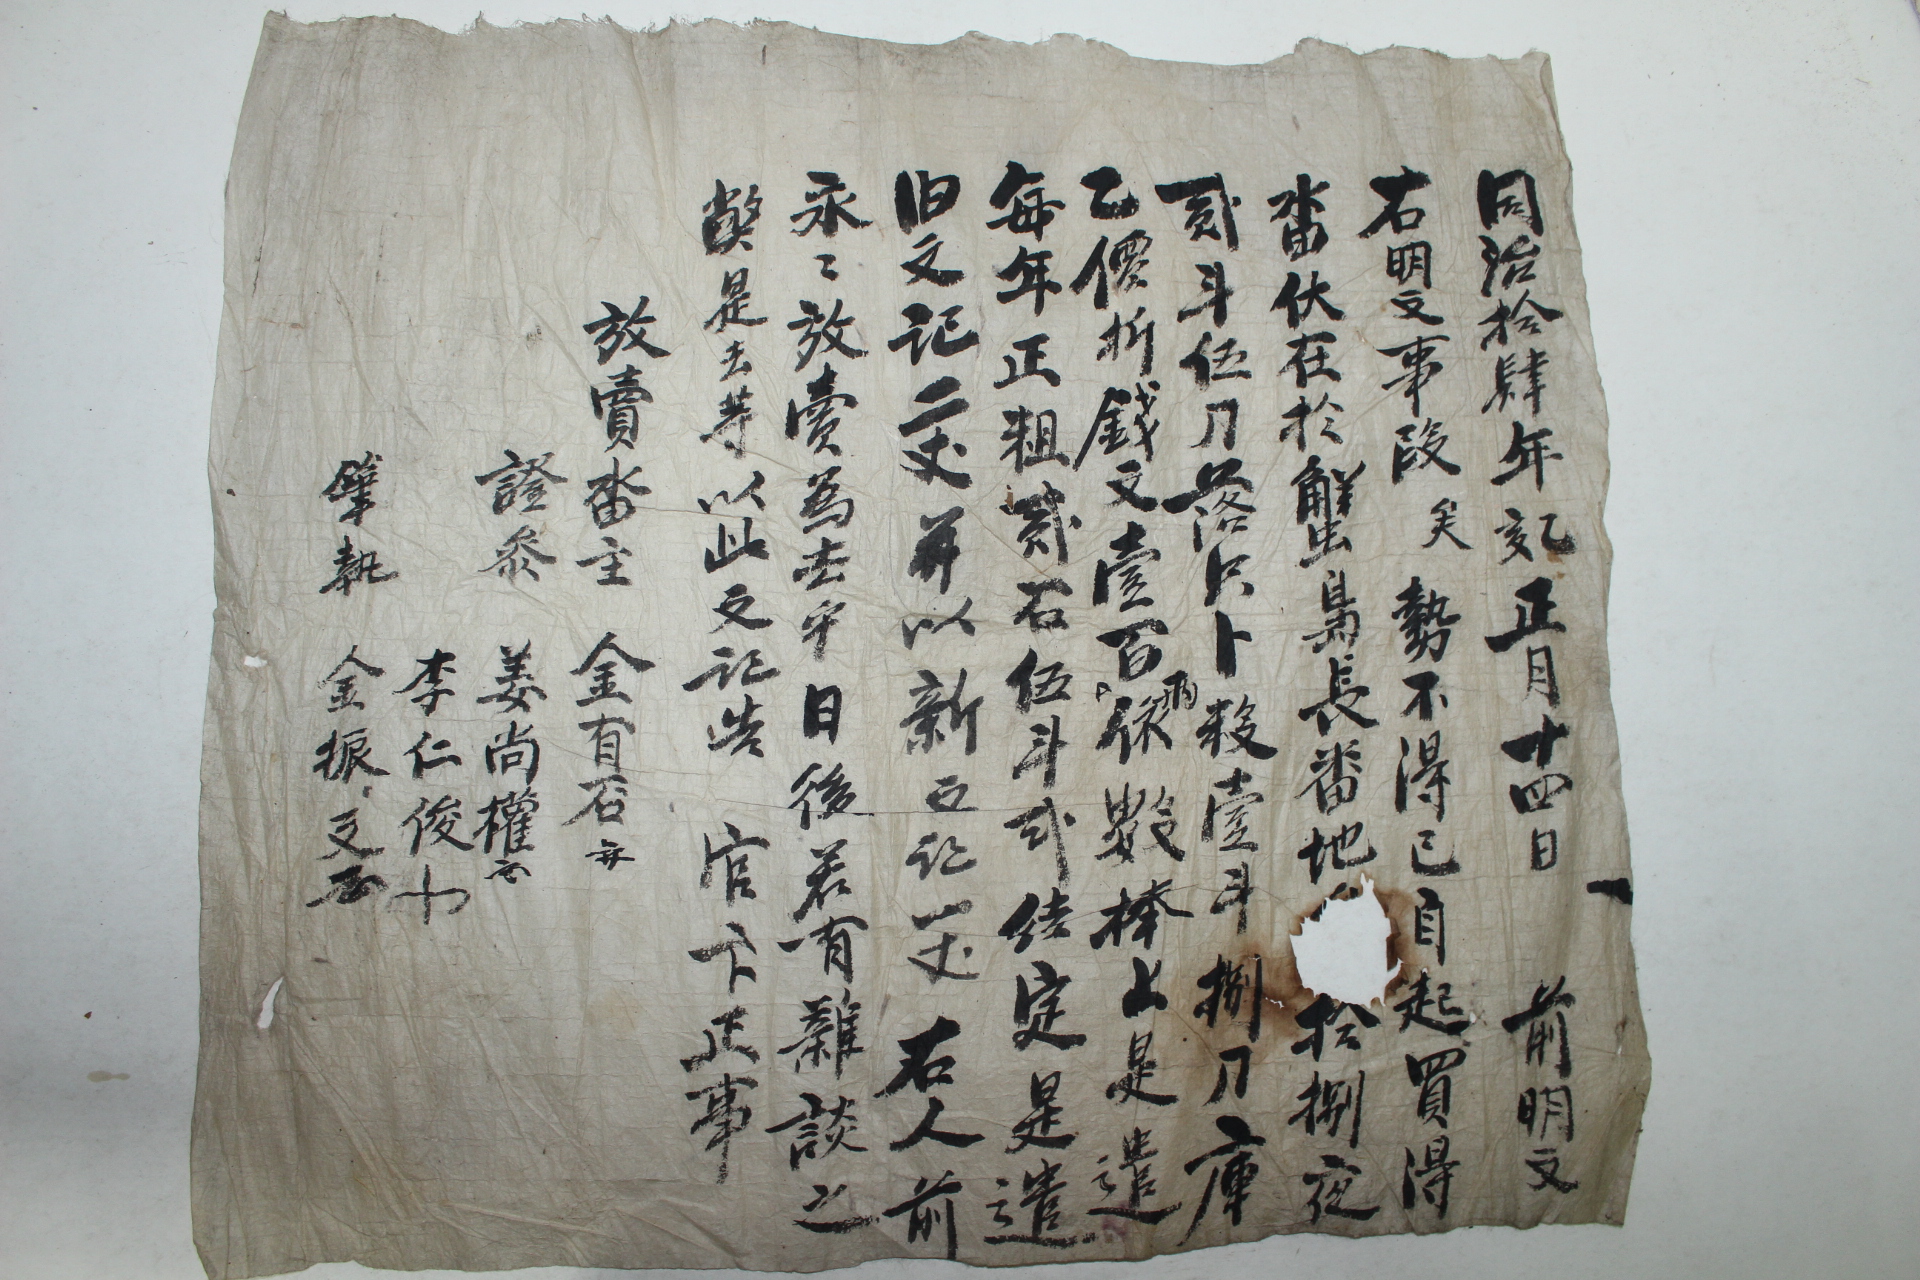 同治拾肆年乙亥正月十四日 前明文
右明文事段矣勢不得已自起買得
畓伏在於蟹島長番地 拾捌夜
貳斗伍刀落只卜數壹斗捌刀庫
乙價折錢文壹百 兩依數捧上是遣
每年正租貳石伍斗貳 定是遣
旧文記二丈并以新文記一丈右人前
永々放賣爲去乎日後若有雜談之
弊是去等以此文記告官卞正事
放賣畓主 金有石
證參 姜尚權
李仁俊
筆執 金振文